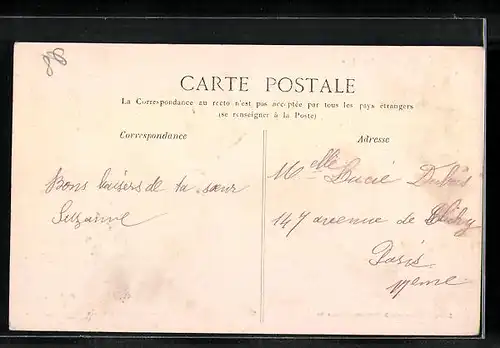 CARTE POSTALE
La Correspondance au recto n'est pas acceptée par tous les pays étrangers
(se renseigner à la Poste)
Correspondance
Adresse
Bons baisers de ta sœur
Suzanne
Melle Lucie Dubois
147 avenue de Clichy
Paris
17eme